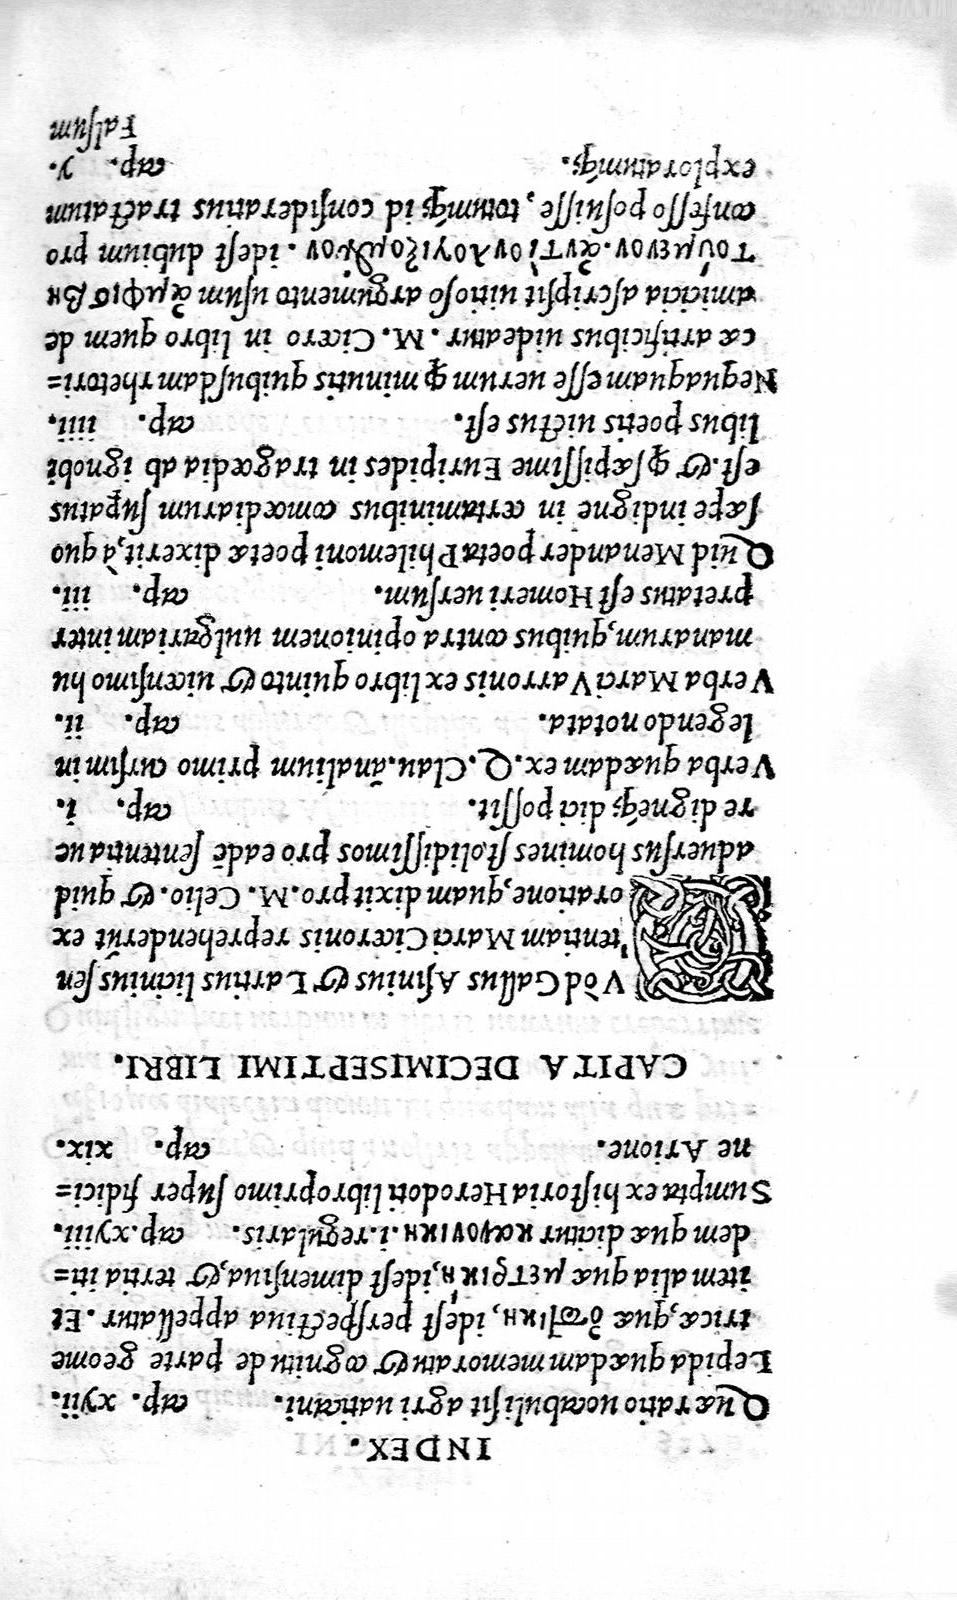 INDEX.
Quæ ratio uocabuli sit agri uaticani. cap. xyii.
Lepida quædam memoratu & cognitu de parte geome
tricæ, quæ ὀπτικη, idest perspectiua appellatur. Et
item alia quæ μετρικὴ, idest dimensiua, & tertia iti=
dem quæ dicitur κανονικη.i.regularis. cap.xyiii.
Sumpta ex historia Herodoti libro primo super fidici=
ne Arione. cap. xix.
CAPITA DECIMISEPTIMI LIBRI.
QVòd Gallus Asinius & Lartius licinius sen
tentiam Marci Ciceronis reprehenderũt ex
oratione, quam dixit pro. M. Celio. & quid
aduersus homines stolidissimos pro eadẽ sententia ue
re digneq́; dici possit. cap. i.
Verba quædam ex. Q. Clau. ãnalium primo cursim in
legendo notata. cap. ii.
Verba Marci Varronis ex libro quinto & uicesimo hu
manarum, quibus contra opinionem uulgariam inter
pretatus est Homeri uersum. cap. iii.
Quid Menander poeta Philemoni poetæ dixerit, à quo
sæpe indigne in certaminibus comœdiarum supatus
est. & ꝙ sæpissime Euripides in tragœdia ab ignobi
libus poetis uictus est. cap. iiii.
Nequaquam esse uerum ꝙ minutis quibusdam rhetori=
cæ artificibus uideatur. M. Cicero in libro quem de
amicicia ascripsit uitioso argumento usum ἀμφισβη
τούμενον.ἀντὶ ὁμολογιζομένου. idest dubium pro
confesso posuisse, totumq́; id consideratius tractatum
exploratumq́;. cap. y.
Falsum